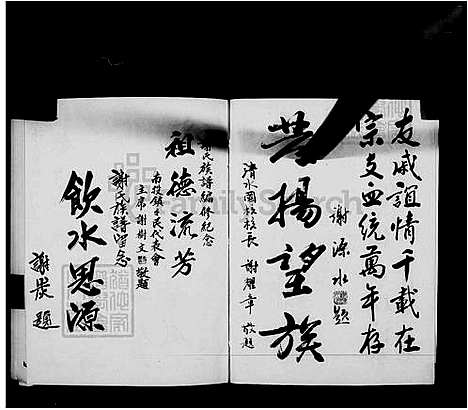 友戚誼情千載在
宗支血統萬年存
謝源水題
揚望族
清水國校校長 謝耀章 敬題
氏族譜編修紀念
祖德流芳
南投鎮民代表會
主席謝樹文敬題
謝氏族譜留念
飲水思源
謝 題
FamilySearch